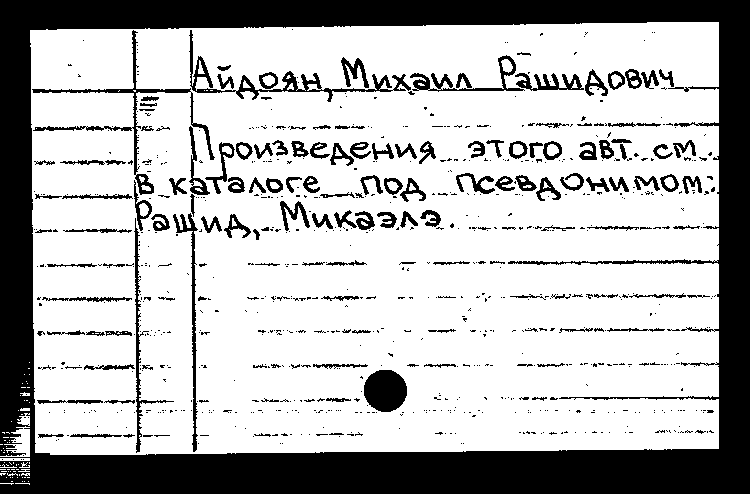 Айдоян, Михаил Рашидович.
Произведения этого авт. см.
в каталоге под псевдонимом:
Рашид, Микаэлэ.